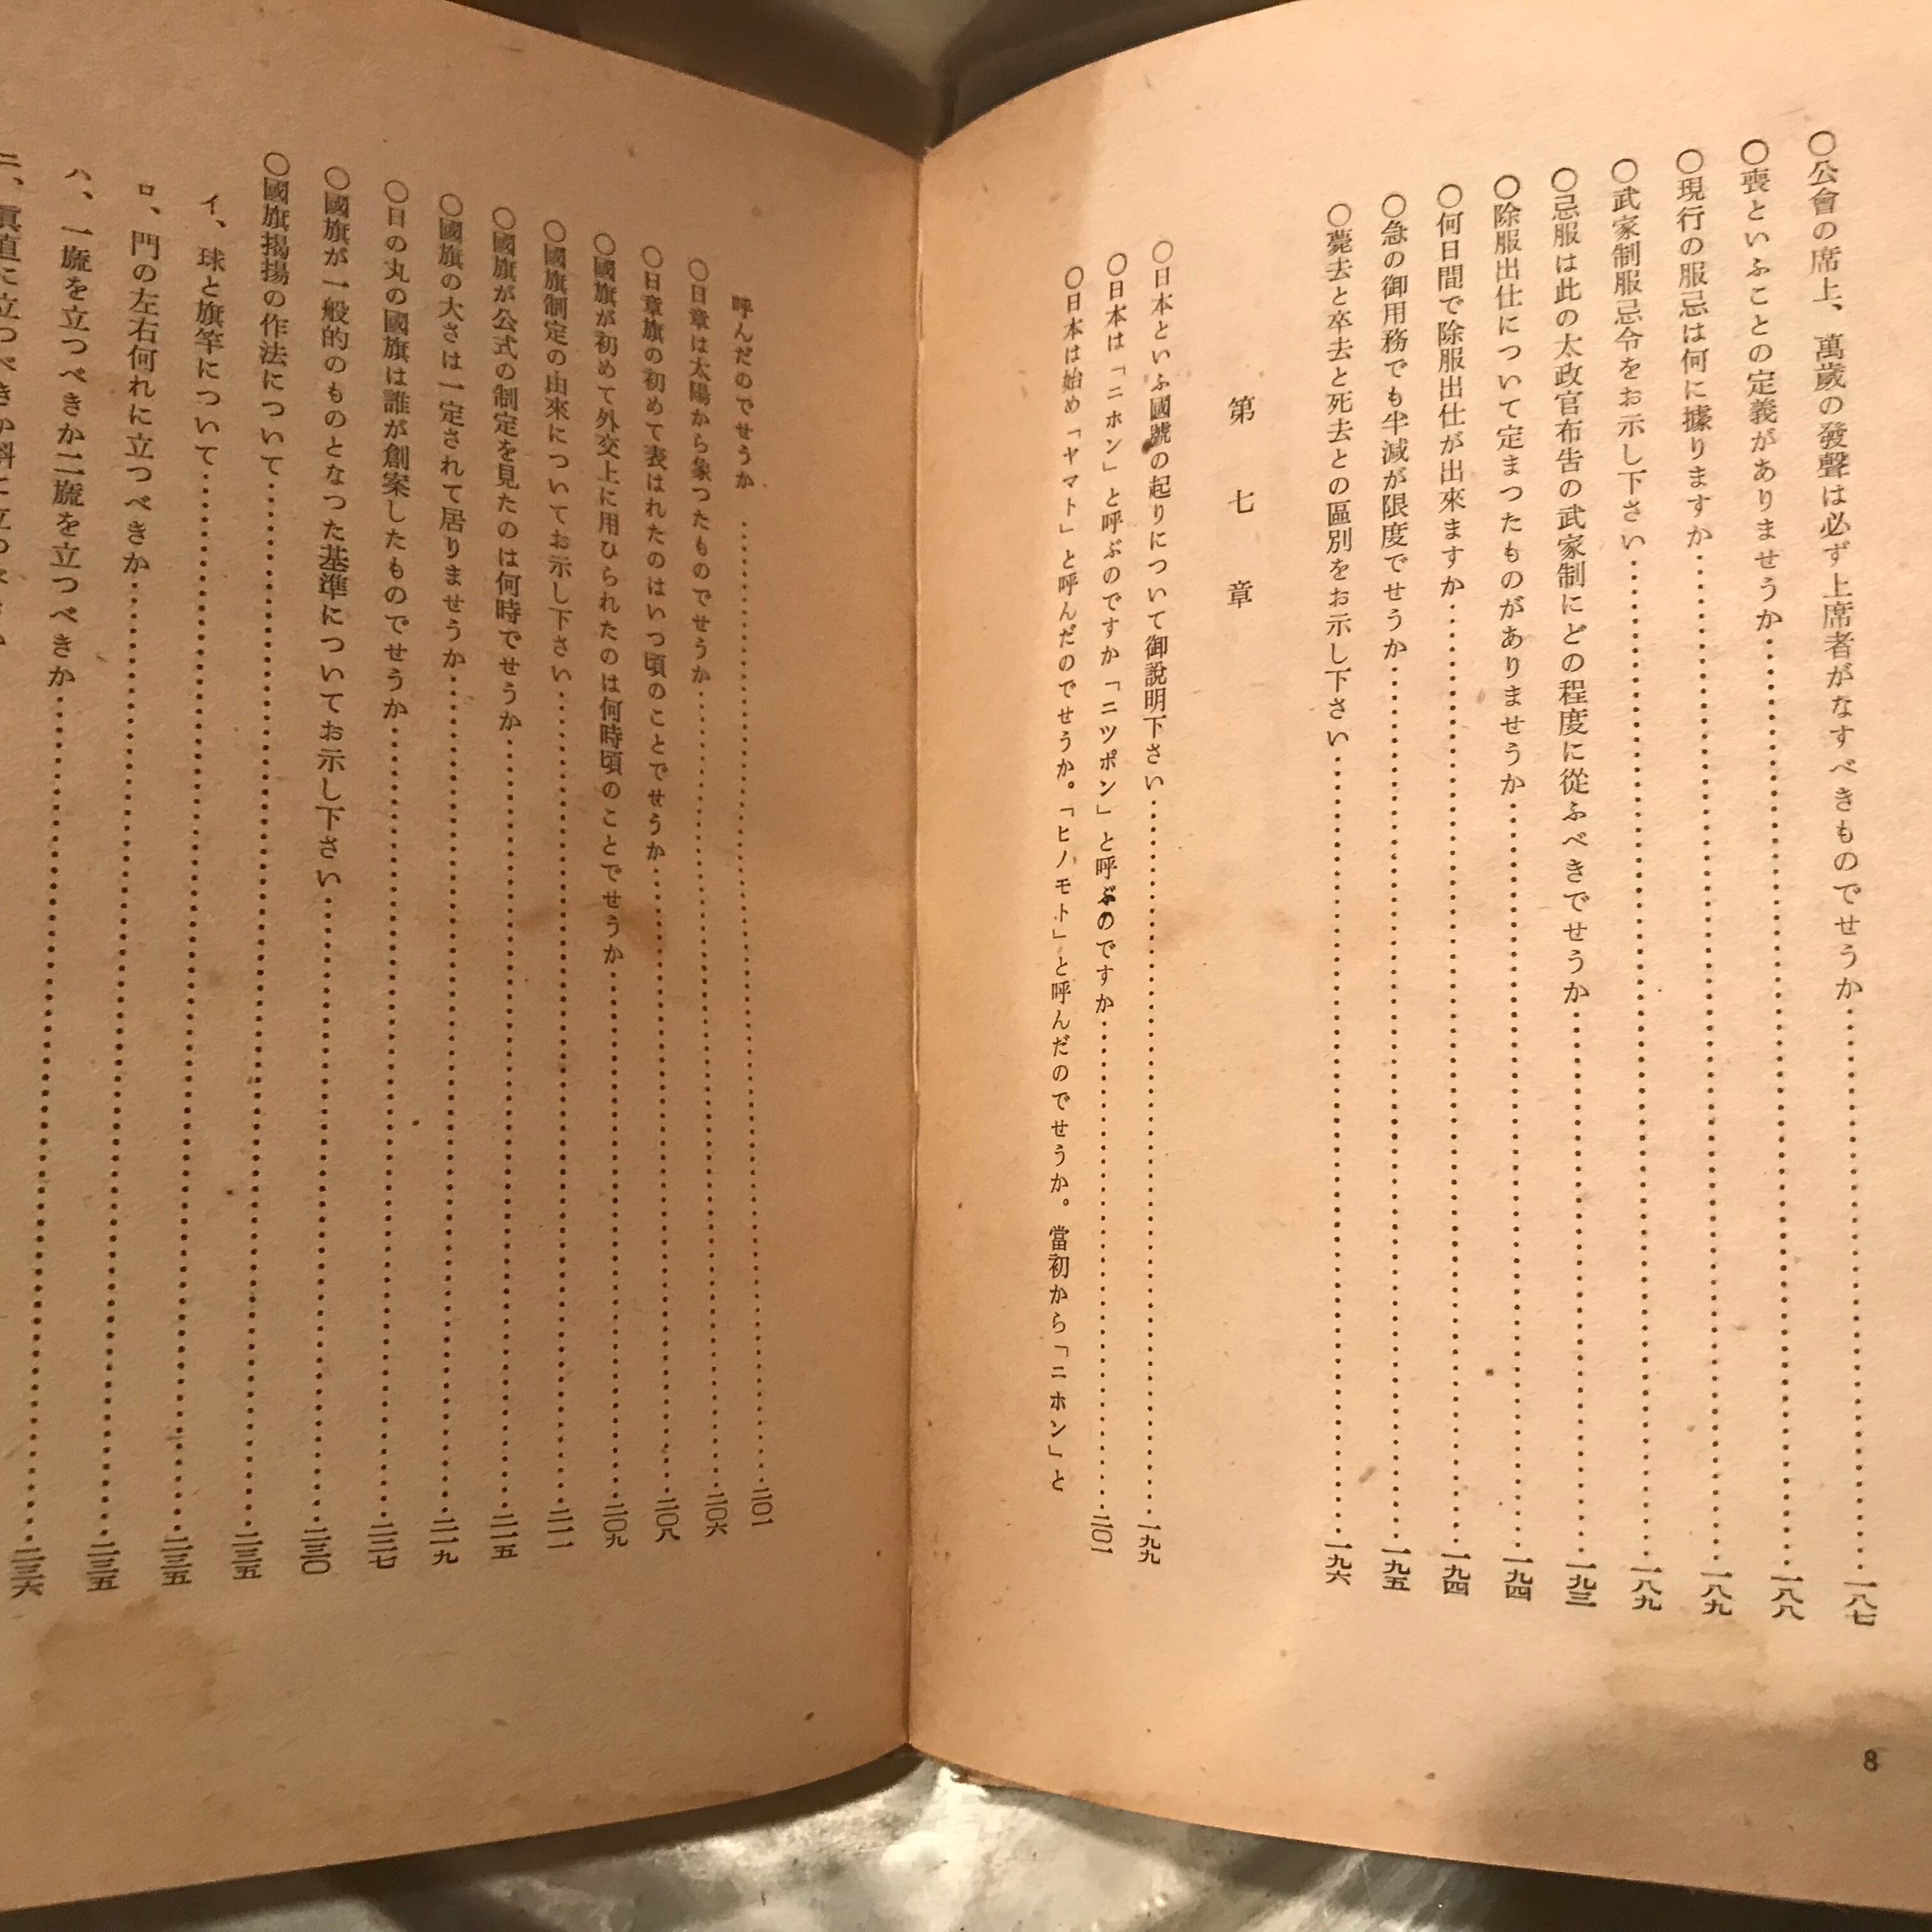 〇公會の席上、萬歲の發聲は必ず上席者がなすべきものでせうか……一八七
〇喪といふことの定義がありませうか……一八八
〇現行の服忌は何に據りますか……一八九
〇武家制服忌令をお示し下さい……一八九
〇忌服は此の太政官布告の武家制にどの程度に從ふべきでせうか……一九三
〇除服出仕について定まつたものがありませうか……一九四
〇何日間で除服出仕が出來ますか……一九四
〇急の御用務でも半減が限度でせうか……一九五
〇薨去と卒去と死去との區別をお示し下さい……一九六
第七章
〇日本といふ國號の起りについて御說明下さい……一九九
〇日本は「ニホン」と呼ぶのですか「ニツポン」と呼ぶのですか……二〇一
〇日本は始め「ヤマト」と呼んだのでせうか。「ヒノモト」と呼んだのでせうか。當初から「ニホン」と
8
呼んだのでせうか……二〇一
〇日章は太陽から象つたものでせうか……二〇六
〇日章旗の初めて表はれたのはいつ頃のことでせうか……二〇八
〇國旗が初めて外交上に用ひられたのは何時頃のことでせうか……二〇九
〇國旗制定の由來についてお示し下さい……二一一
〇國旗が公式の制定を見たのは何時でせうか……二一五
〇國旗の大さは一定されて居りませうか……二一九
〇日の丸の國旗は誰が創案したものでせうか……二二七
〇國旗が一般的のものとなつた基準についてお示し下さい……二三〇
〇國旗揭揚の作法について……二三五
イ、球と旗竿について……二三五
ロ、門の左右何れに立つべきか……二三五
ハ、一旒を立つべきか二旒を立つべきか……二三五
ニ、眞直に立つべきか斜に立つべきか……二三六